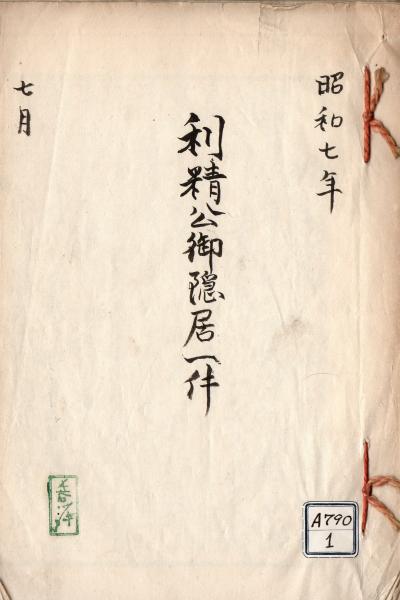 昭和七年
利精公御隠居一件
七月
A790
1